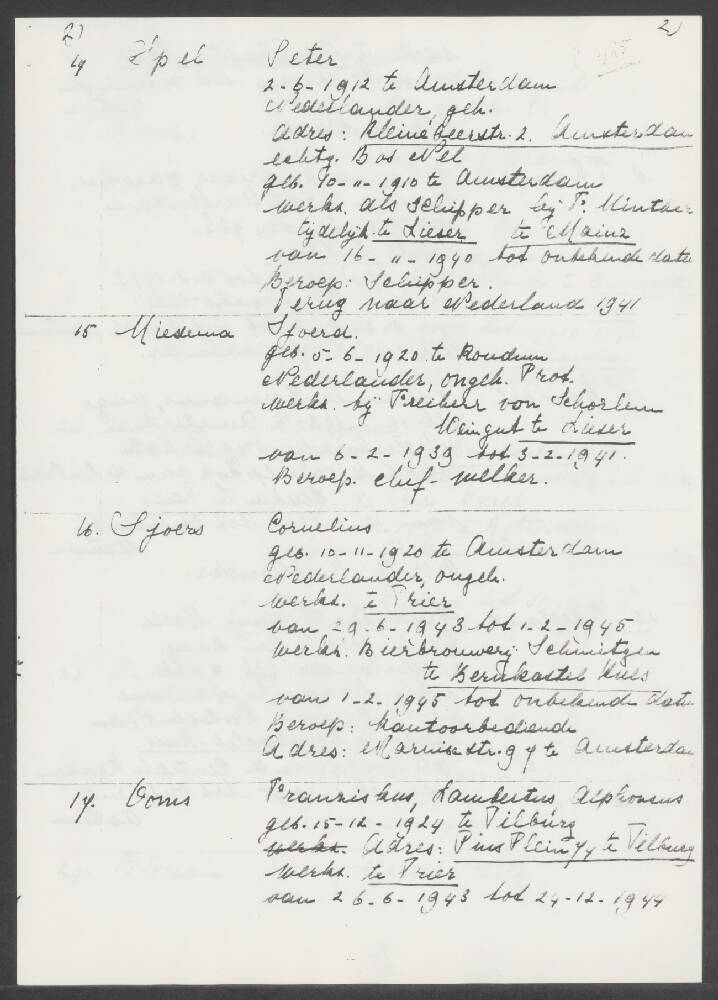 2) 2)
14 Zipei Peter
2-6-1912 te Amsterdam
Nederlander, geh.
Adres: Kleine Geerstr. 2. Amsterdam
echtg. Bos Nel
geb. 10-11-1910 te Amsterdam
werkz. als Schipper bij F.
tijdelijk te Lieser te Mainz
van 16-11-1940 tot onbekende datu
Beroep: Schipper.
Terug naar Nederland 1941
15 Miedema Sjoerd.
geb. 5-6-1920 te Koudum
Nederlander, ongeh. Prot.
werkz. bij Freiherr von Schorlem
Weingut te Lieser
van 6-2-1939 tot 3-2-1941.
Beroep. chef-melker.
16. Sjoers Cornelius
geb. 10-11-1920 te Amsterdam
Nederlander, ongeh.
werkz. te Trier
van 29-6-1943 tot 1-2-1945
werkz. Bierbrouwerij Schmitgen
te Bernkastel Kues
van 1-2-1945 tot onbekende datu
Beroep: Kantoorbediende
Adres: Marnixstr. 97 te Amsterda
17. Ooms Franziskus, Lambertus Alphonsus
geb. 15-12-1924 te Tilburg
werkz. Adres: Pius Plein 74 te Tilburg
werkz. te Trier
van 26-6-1943 tot 24-12-1944